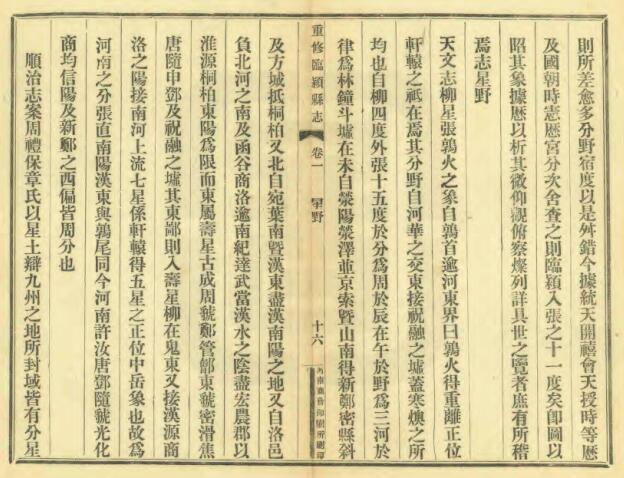 則所差愈多分野宿度以是舛錯今據統天開禧會天授時等歷
及國朝時憲歷宮分次舍查之則臨穎入張之十一度矣卽圖以
昭其象據歷以析其微仰觀俯察燦列詳具世之覽者庶有所稽
焉志星野
天文志柳星張鶉火之象自鶉首逾河東界曰鶉火得重離正位
軒轅之祗在焉其分野自河華之交東接祝融之墟蓋寒燠之所
均也自柳四度外張十五度於分爲周於辰在午於野爲三河於
律爲林鐘斗墟在未自滎陽滎澤並京索曁山南得新鄭密縣斜
重修臨穎縣志
卷一
星野
十六
及方城抵桐柏又北自宛葉南曁漢東盡漢南陽之地又自洛邑
負北河之南及函谷商洛逾南紀達武當漢水之陰盡宏農郡以
淮源桐柏東陽爲限而東屬壽星古成周虢鄭管鄶東虢密滑焦
唐隨申鄧及祝融之墟其東鄙則入壽星柳在鬼東又接漢源商
洛之陽接南河上流七星係軒轅得五星之正位中岳象也故爲
河南之分張直南陽漢東與鶉尾同今河南許汝唐鄧隨虢光化
商均信陽及新鄭之西偏皆周分也
順治志案周禮保章氏以星土辯九州之地所封域皆有分星